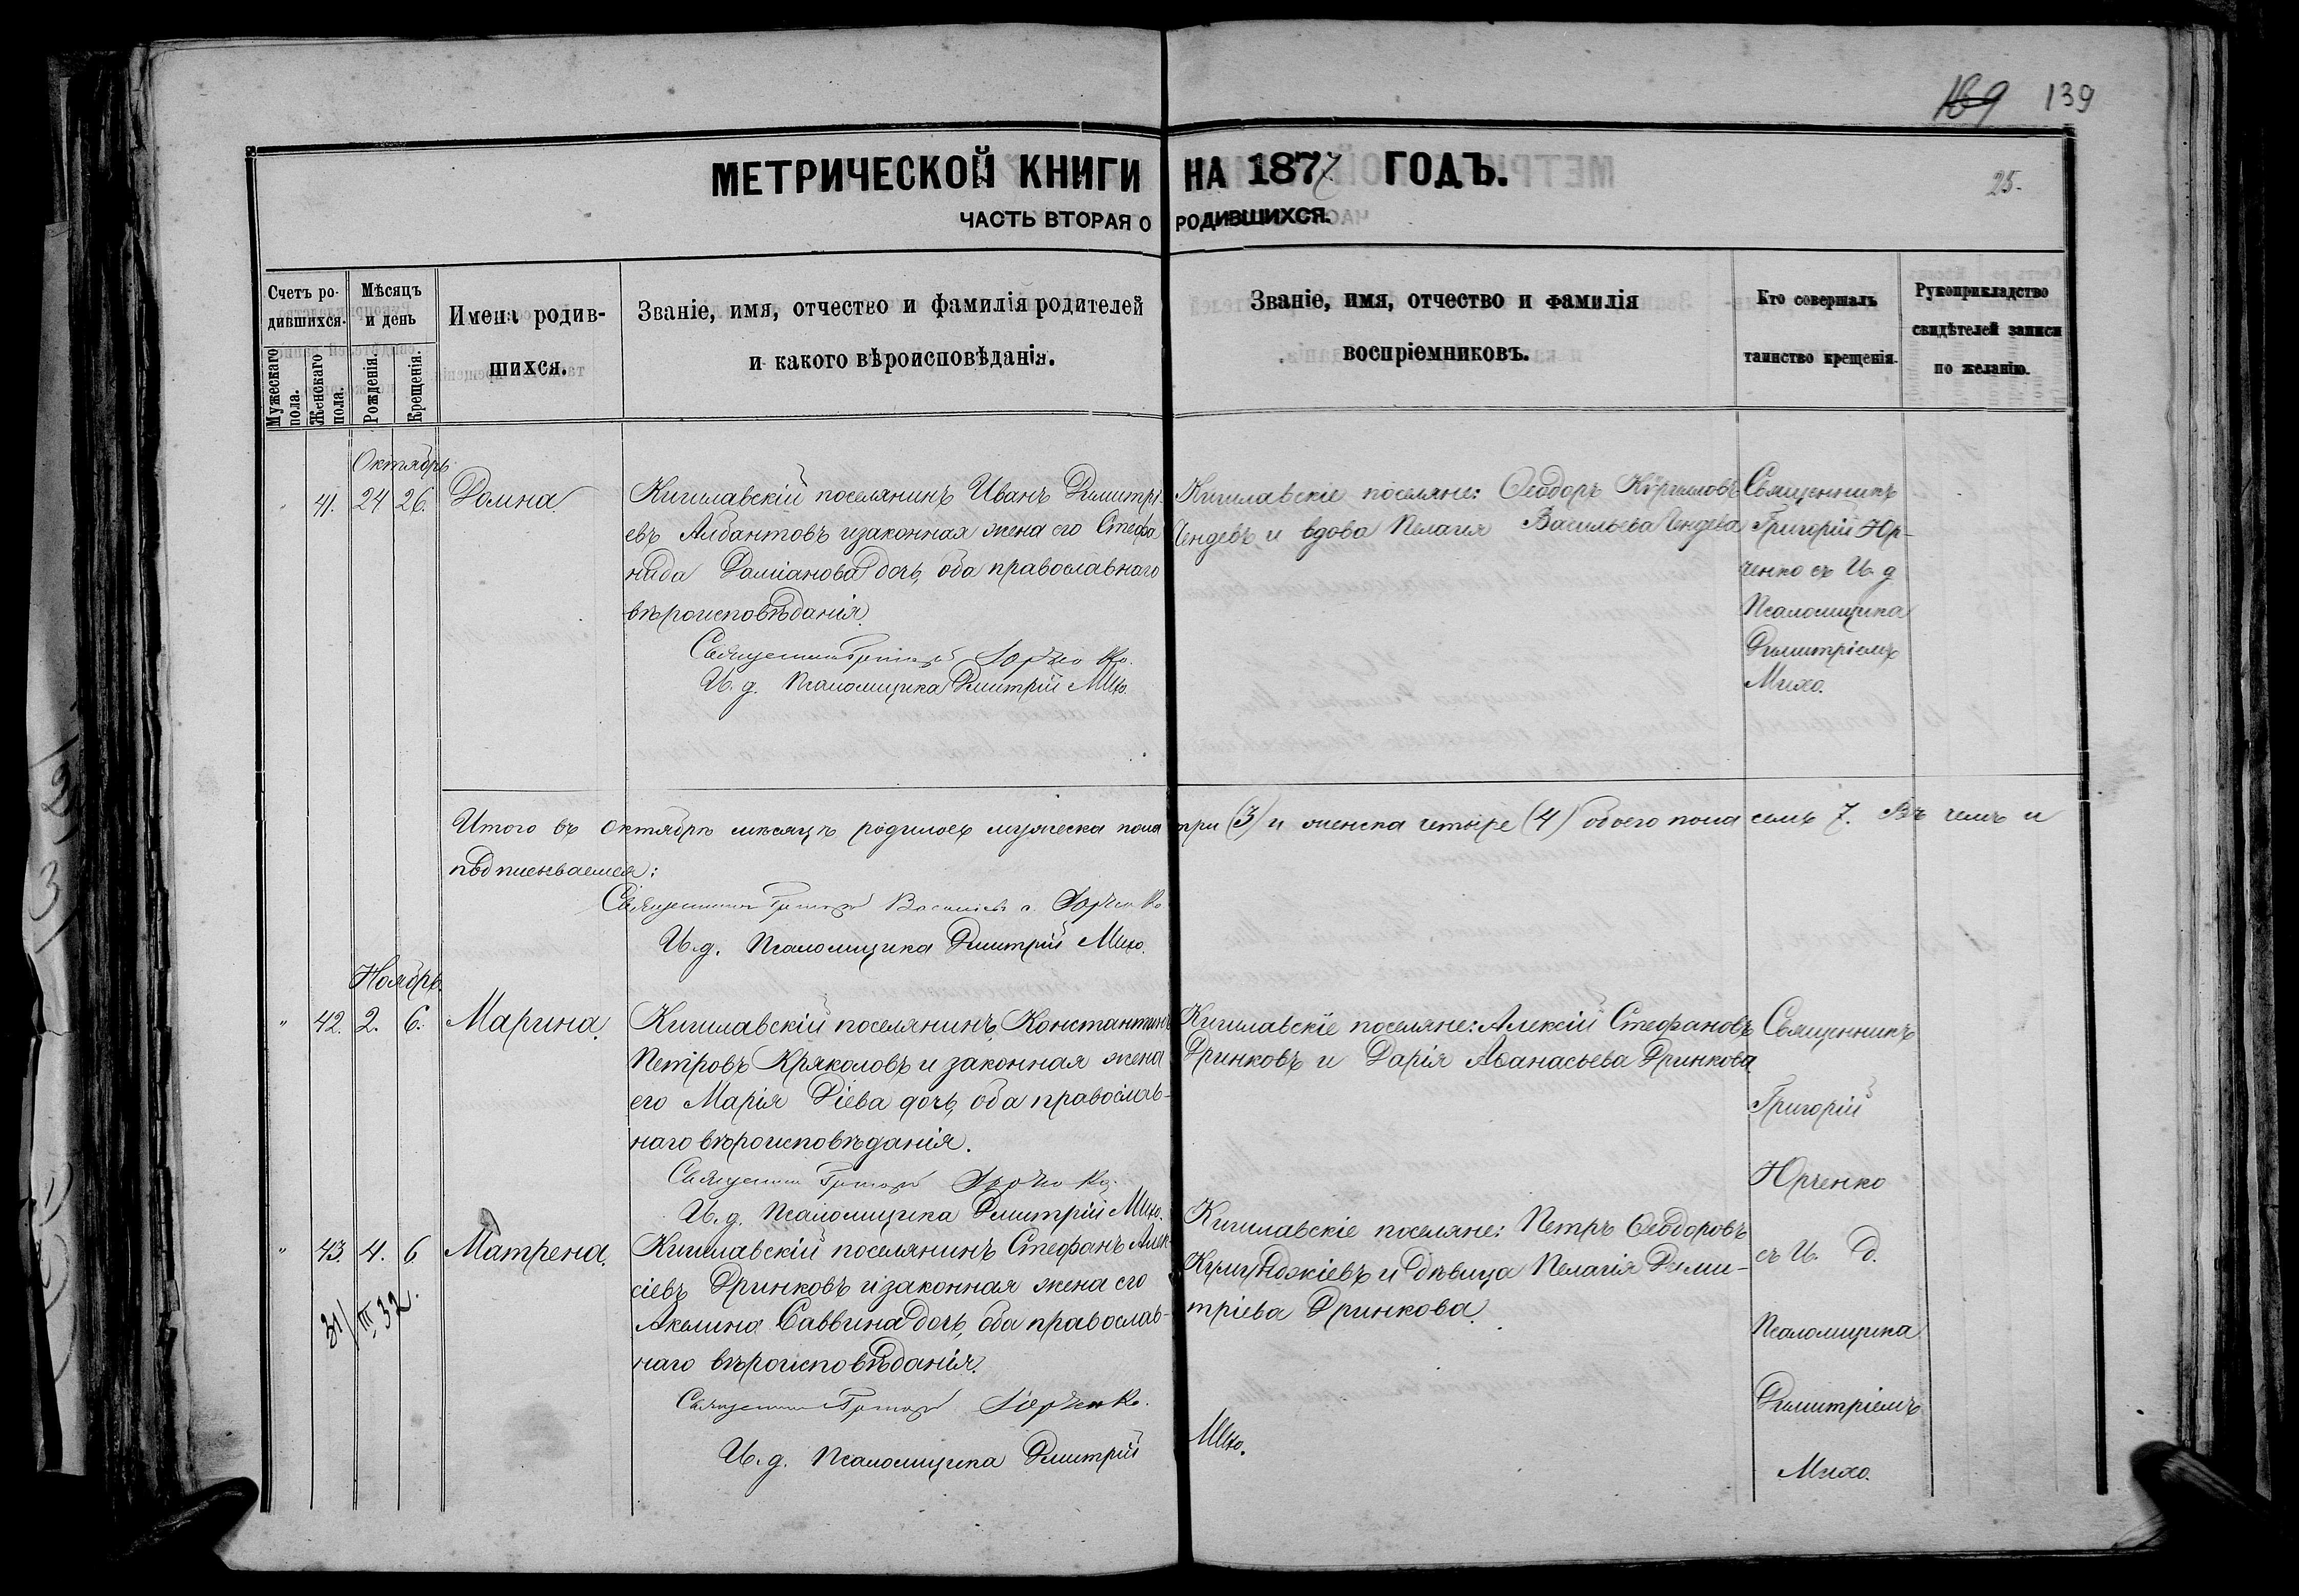 139
МЕТРИЧЕСКОЙ КНИГИ НА 1877 ГОДЪ.
25.
ЧАСТЬ ВТОРАЯ О РОДИВШИХСЯ.
Счетъ родившихся.
Мужескаго пола.
Женскаго пола.
Мѣсяцъ и день
Рожденія.
Крещенія.
Имена родившихся.
Званіе, имя, отчество и фамилія родителей
и какого вѣроисповѣданія.
Званіе, имя, отчество и фамилія
воспріемниковъ.
Кто совершалъ
таинство крещенія.
Рукоприкладство
свидѣтелей записи
по желанію.
Октябрь
" 41. 24 26. Домна
Кигилавскій поселянинъ Иванъ Димитрі-
евъ Албантовъ и законная жена его Стефа
нида Даміанова дочь, оба православнаго
вѣроисповѣданія.
Священникъ Григорій Юрченко.
И. д. Псаломщика Дмитрій Михо.
Кигилавскіе поселяне: Ѳеодоръ Кирилловъ
Чендевъ и вдова Пелагія Васильева Чендева
Священникъ
Григорій Юр-
ченко съ И. д
Псаломщика
Димитріемъ
Михо.
Итого въ октябрѣ мѣсяцѣ родилось мужеска пола три (3) и женска четыре (4) обоего пола семь 7. Въ чемъ и
подписываемся:
Священникъ Григорій Юрченко
И. д. Псаломщика Дмитрій Михо.
Ноябрь.
" 42. 2. 6. Марина.
Кигилавскій поселянинъ, Константинъ
Петровъ Кряколовъ и законная жена
его Марія Діева дочь, оба православ-
наго вѣроисповѣданія.
Священникъ Григорій Юрченко.
И. д. Псаломщика Дмитрій Михо.
Кигилавскіе поселяне: Алексій Стефановъ
Дринковъ и Дарія Аѳанасьева Дринкова
Священникъ
Григорій
Юрченко
съ И. Д.
Псаломщика
Димитріемъ
Михо.
" 43. 4. 6 Матрена.
31/III 32.
Кигилавскій поселянинъ Стефанъ Алек-
сіевъ Дринковъ и законная жена его
Акелина Саввина дочь, оба православ-
наго вѣроисповѣданія.
Священникъ Григорій Юрченко.
И. д. Псаломщика Дмитрій Михо.
Кигилавскіе поселяне: Петръ Ѳеодоровъ
Куюунджіевъ и дѣвица Пелагія Дими-
тріева Дринкова.